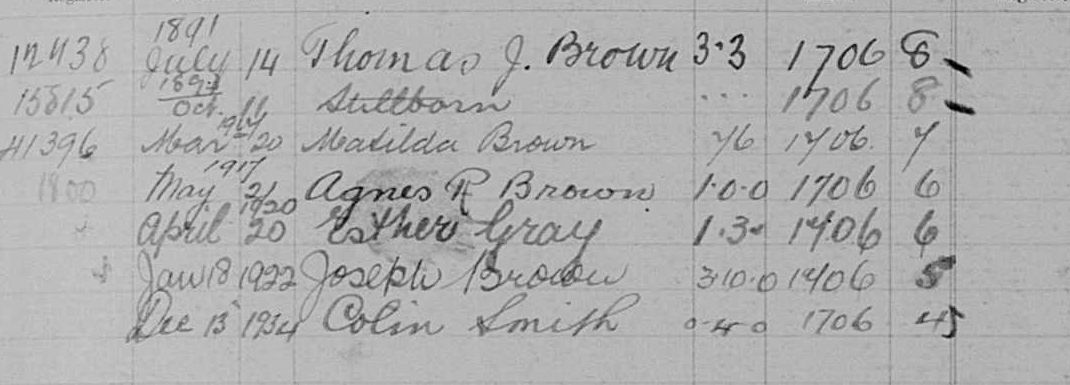 1891
12438 July 14 Thomas J. Brown 3.3 1706 8
1893
15815 Oct. 11 Stillborn ... 1706 8
41396 Mar 20 Matilda Brown 76 1706. 7
1917
1800 May 21 Agnes R Brown 1.0.0 1706 6
1920
April 20 Esther Gray 1.3. 1706 6
Jan 18 1922 Joseph Brown 3.10.0 1706 5
Dec 13 1934 Colin Smith 0.4.0 1706 45